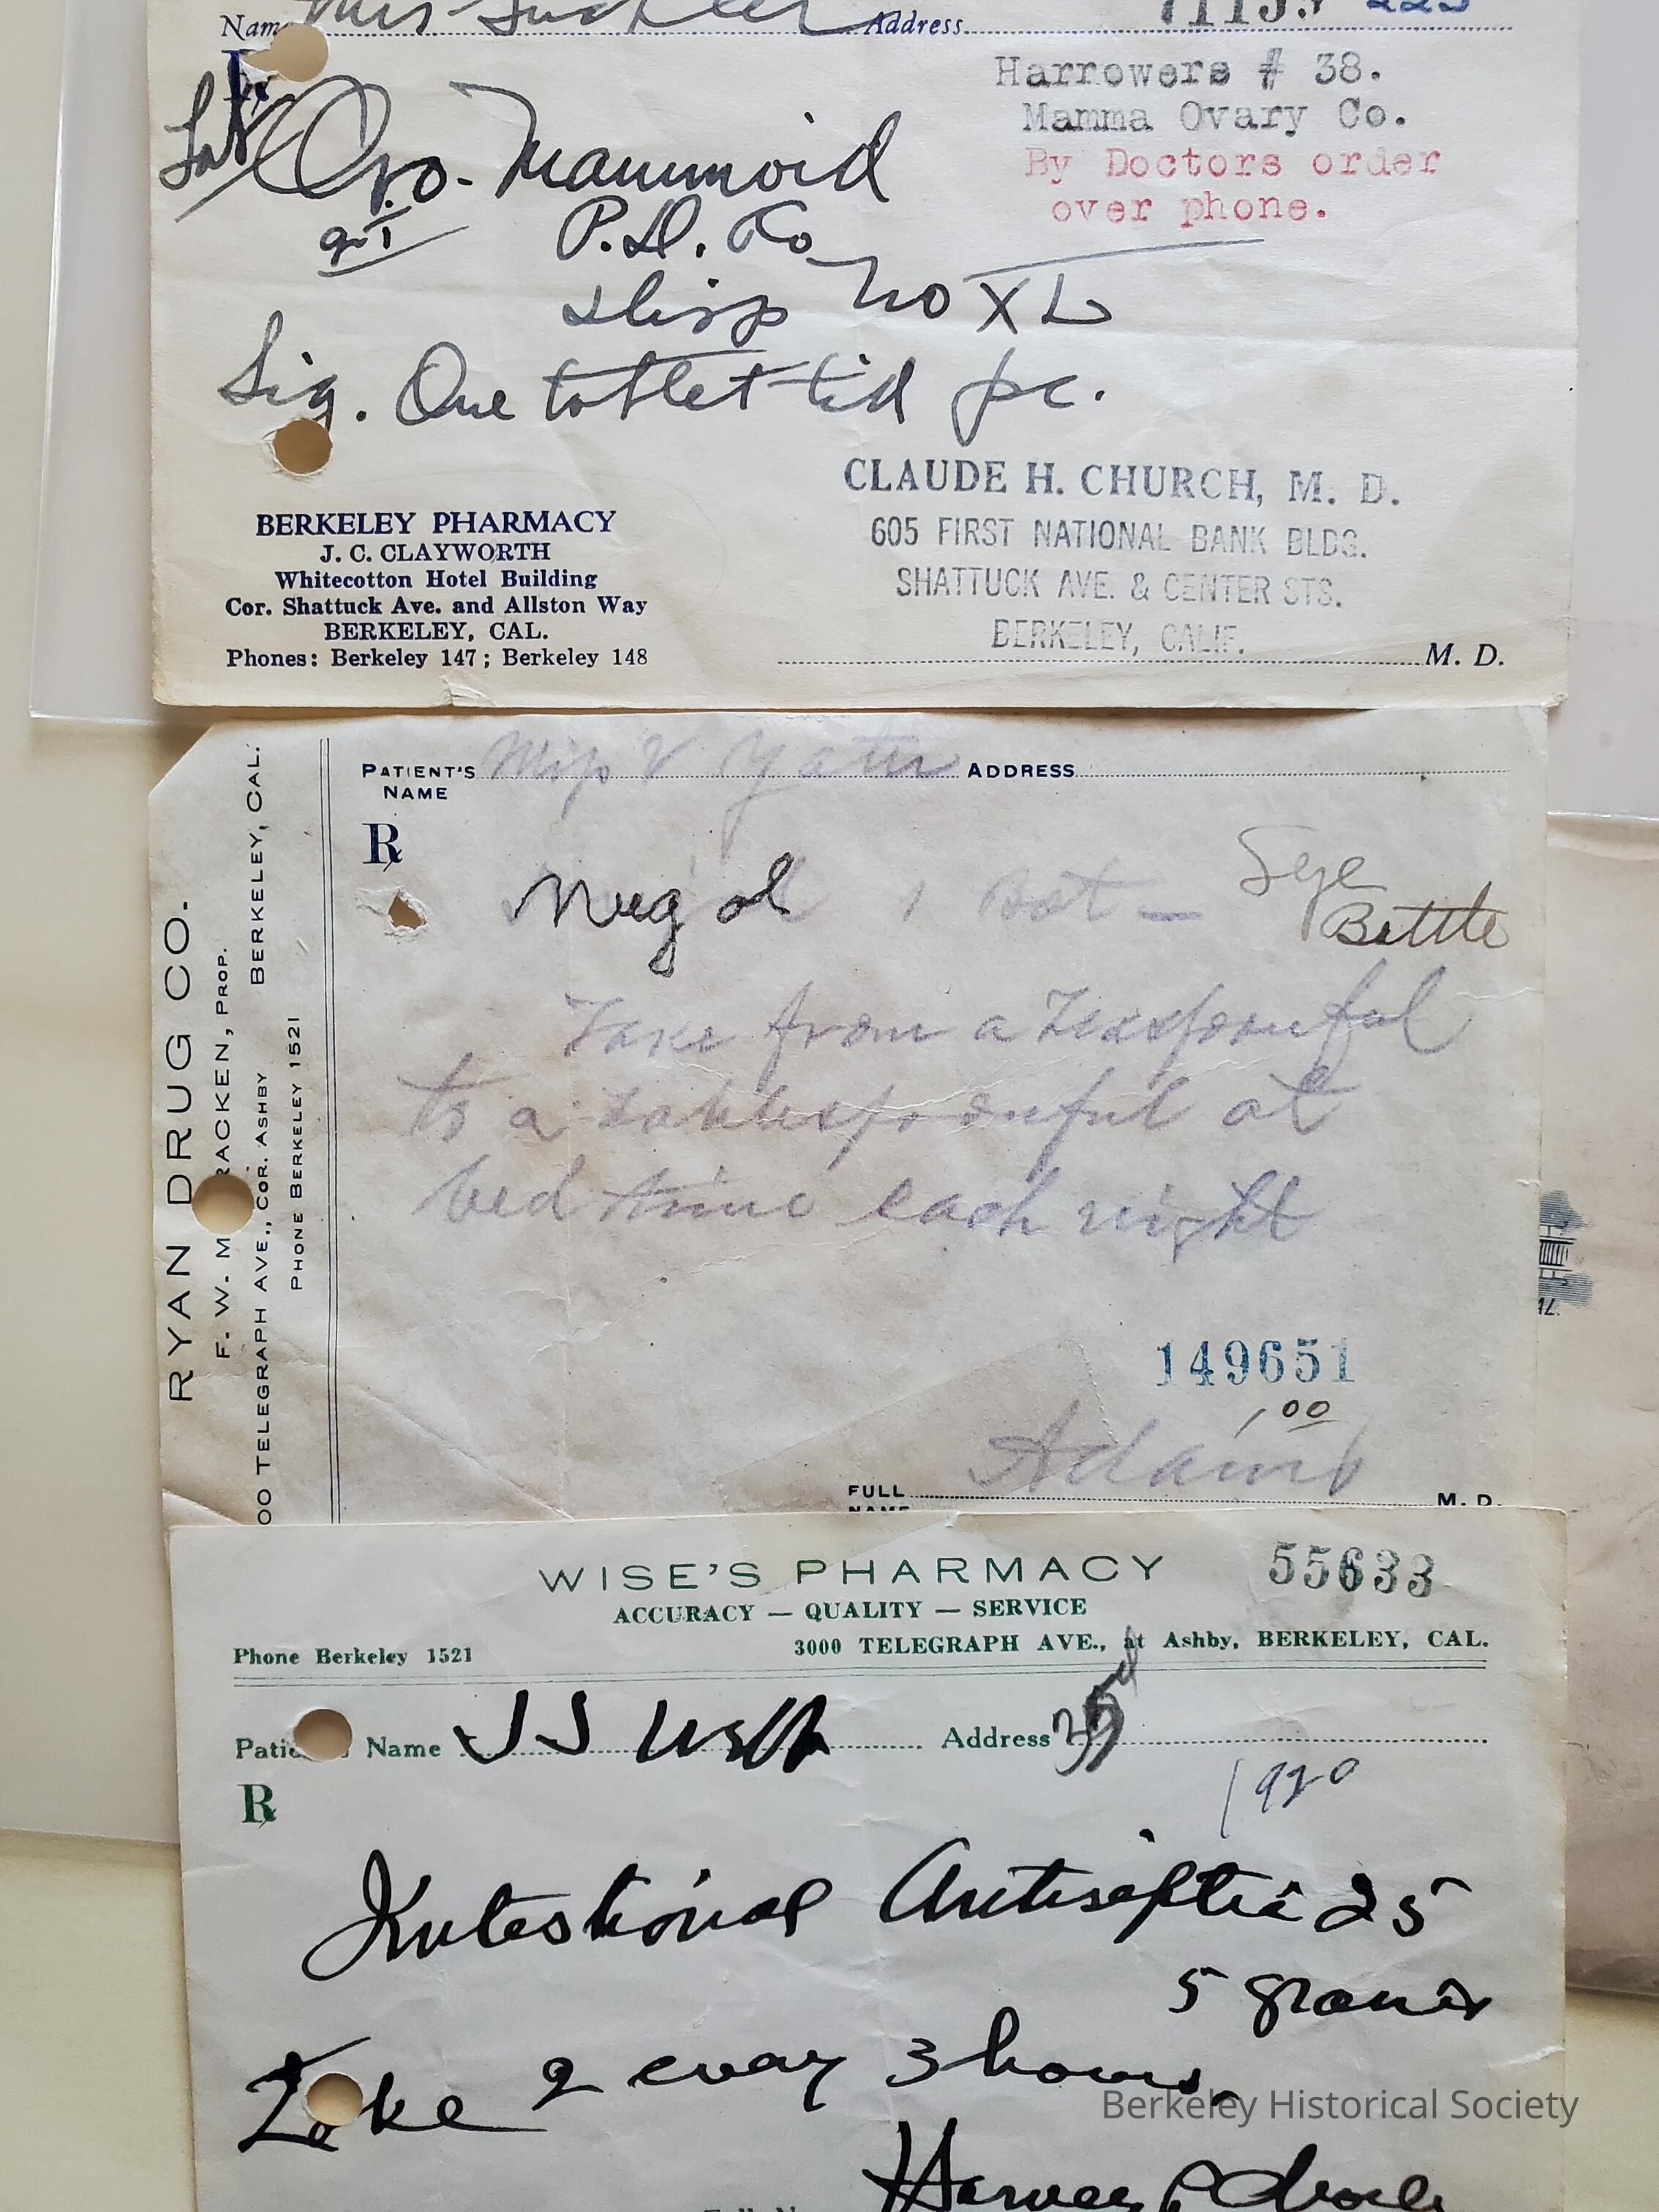 Name Mrs Address
Harrowers # 38.
Mamma Ovary Co.
By Doctors order
over phone.
Ovo-Mammoid
P.D. Co
Disp No XL
Sig. One tablet tid pc.
CLAUDE H. CHURCH, M. D.
605 FIRST NATIONAL BANK BLDG.
SHATTUCK AVE. & CENTER STS.
BERKELEY, CALIF.
M. D.
BERKELEY PHARMACY
J. C. CLAYWORTH
Whitecotton Hotel Building
Cor. Shattuck Ave. and Allston Way
BERKELEY, CAL.
Phones: Berkeley 147; Berkeley 148
RYAN DRUG CO.
F. W. M RACKEN, PROP.
00 TELEGRAPH AVE., COR. ASHBY BERKELEY, CAL.
PHONE BERKELEY 1521
PATIENT'S ADDRESS
NAME
℞
Nugol 1 Bot-
Bottle
Take from a teaspoonful
to a tablespoonful at
bed time each night
149651
1.00
Adams
FULL M. D.
NAME
WISE'S PHARMACY 55633
ACCURACY — QUALITY — SERVICE
Phone Berkeley 1521 3000 TELEGRAPH AVE., at Ashby, BERKELEY, CAL.
Name J J Address
1920
℞
Intestional Antiseptic 25
5 grains
Take 2 evay 3 hours.
Harvey
Berkeley Historical Society